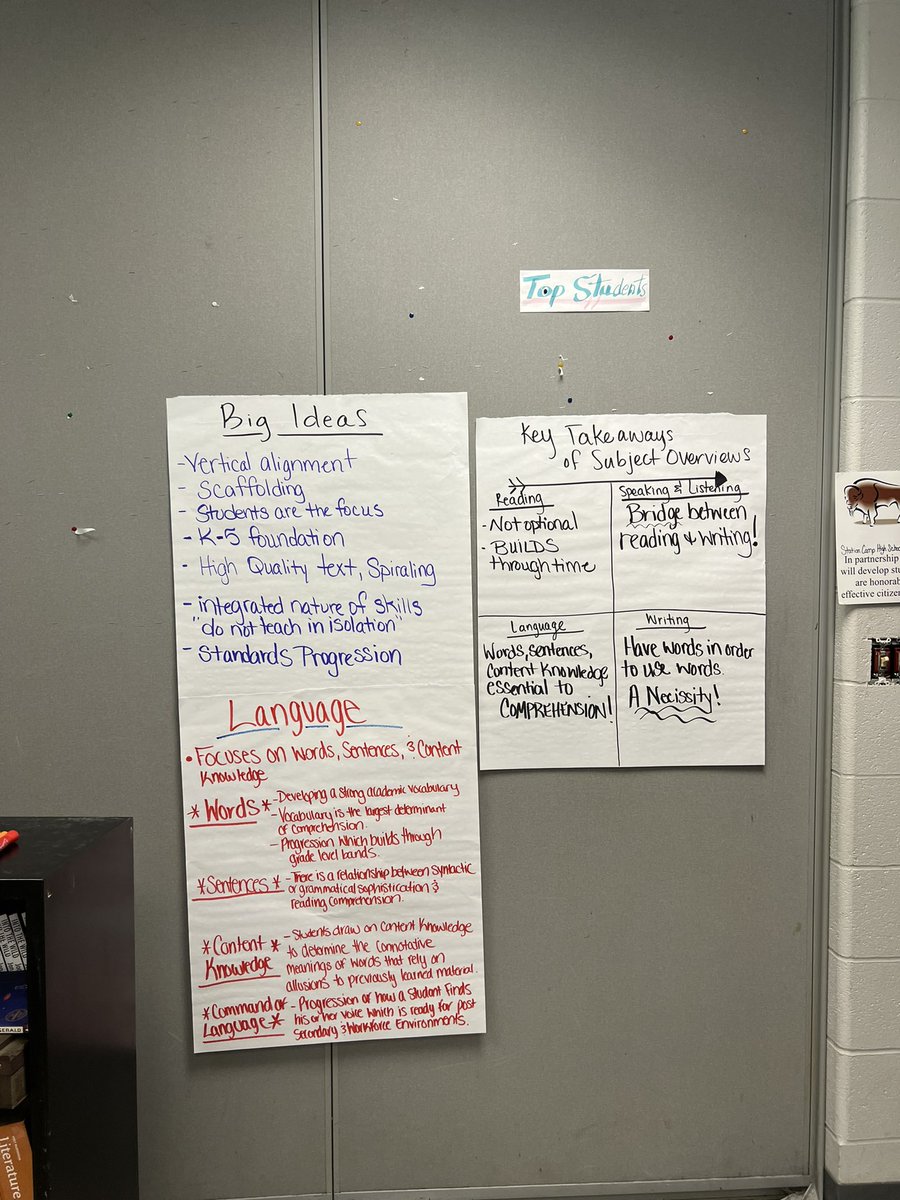 Top Students
Big Ideas
-Vertical alignment
- Scaffolding
- Students are the focus
- K-5 foundation
- High Quality text, Spiraling
- integrated nature of skills
"do not teach in isolation"
- Standards Progression
Language
• Focuses on Words, Sentences, & Content
Knowledge
*Words* - Developing a strong academic vocabulary
- Vocabulary is the largest determinant
of comprehension.
- Progression which builds through
grade level bands.
*Sentences* - There is a relationship between syntactic
or grammatical sophistication &
reading comprehension.
*Content * - Students draw on Content Knowledge
Knowledge to determine the connotative
meanings of words that rely on
allusions to previously learned material.
*Command of - Progression of how a student finds
Language* his or her voice which is ready for post
secondary & workforce environments.
Key Takeaways
of Subject Overviews
Reading
- Not optional
- BUILDS
through time
Speaking & Listening
Bridge between
reading & writing!
Language
Words, sentences,
content knowledge
essential to
COMPREHENSION!
Writing
Have words in order
to use words.
A Necissity!
Station Camp High School
In partnership
will develop
are honorab
effective citize
INTO THE WILD
INTO THE WILD
GERALD
Literature